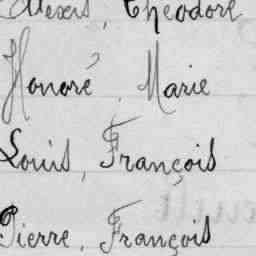 Alexis, Théodore
Honoré, Marie
Louis, François
Pierre, François